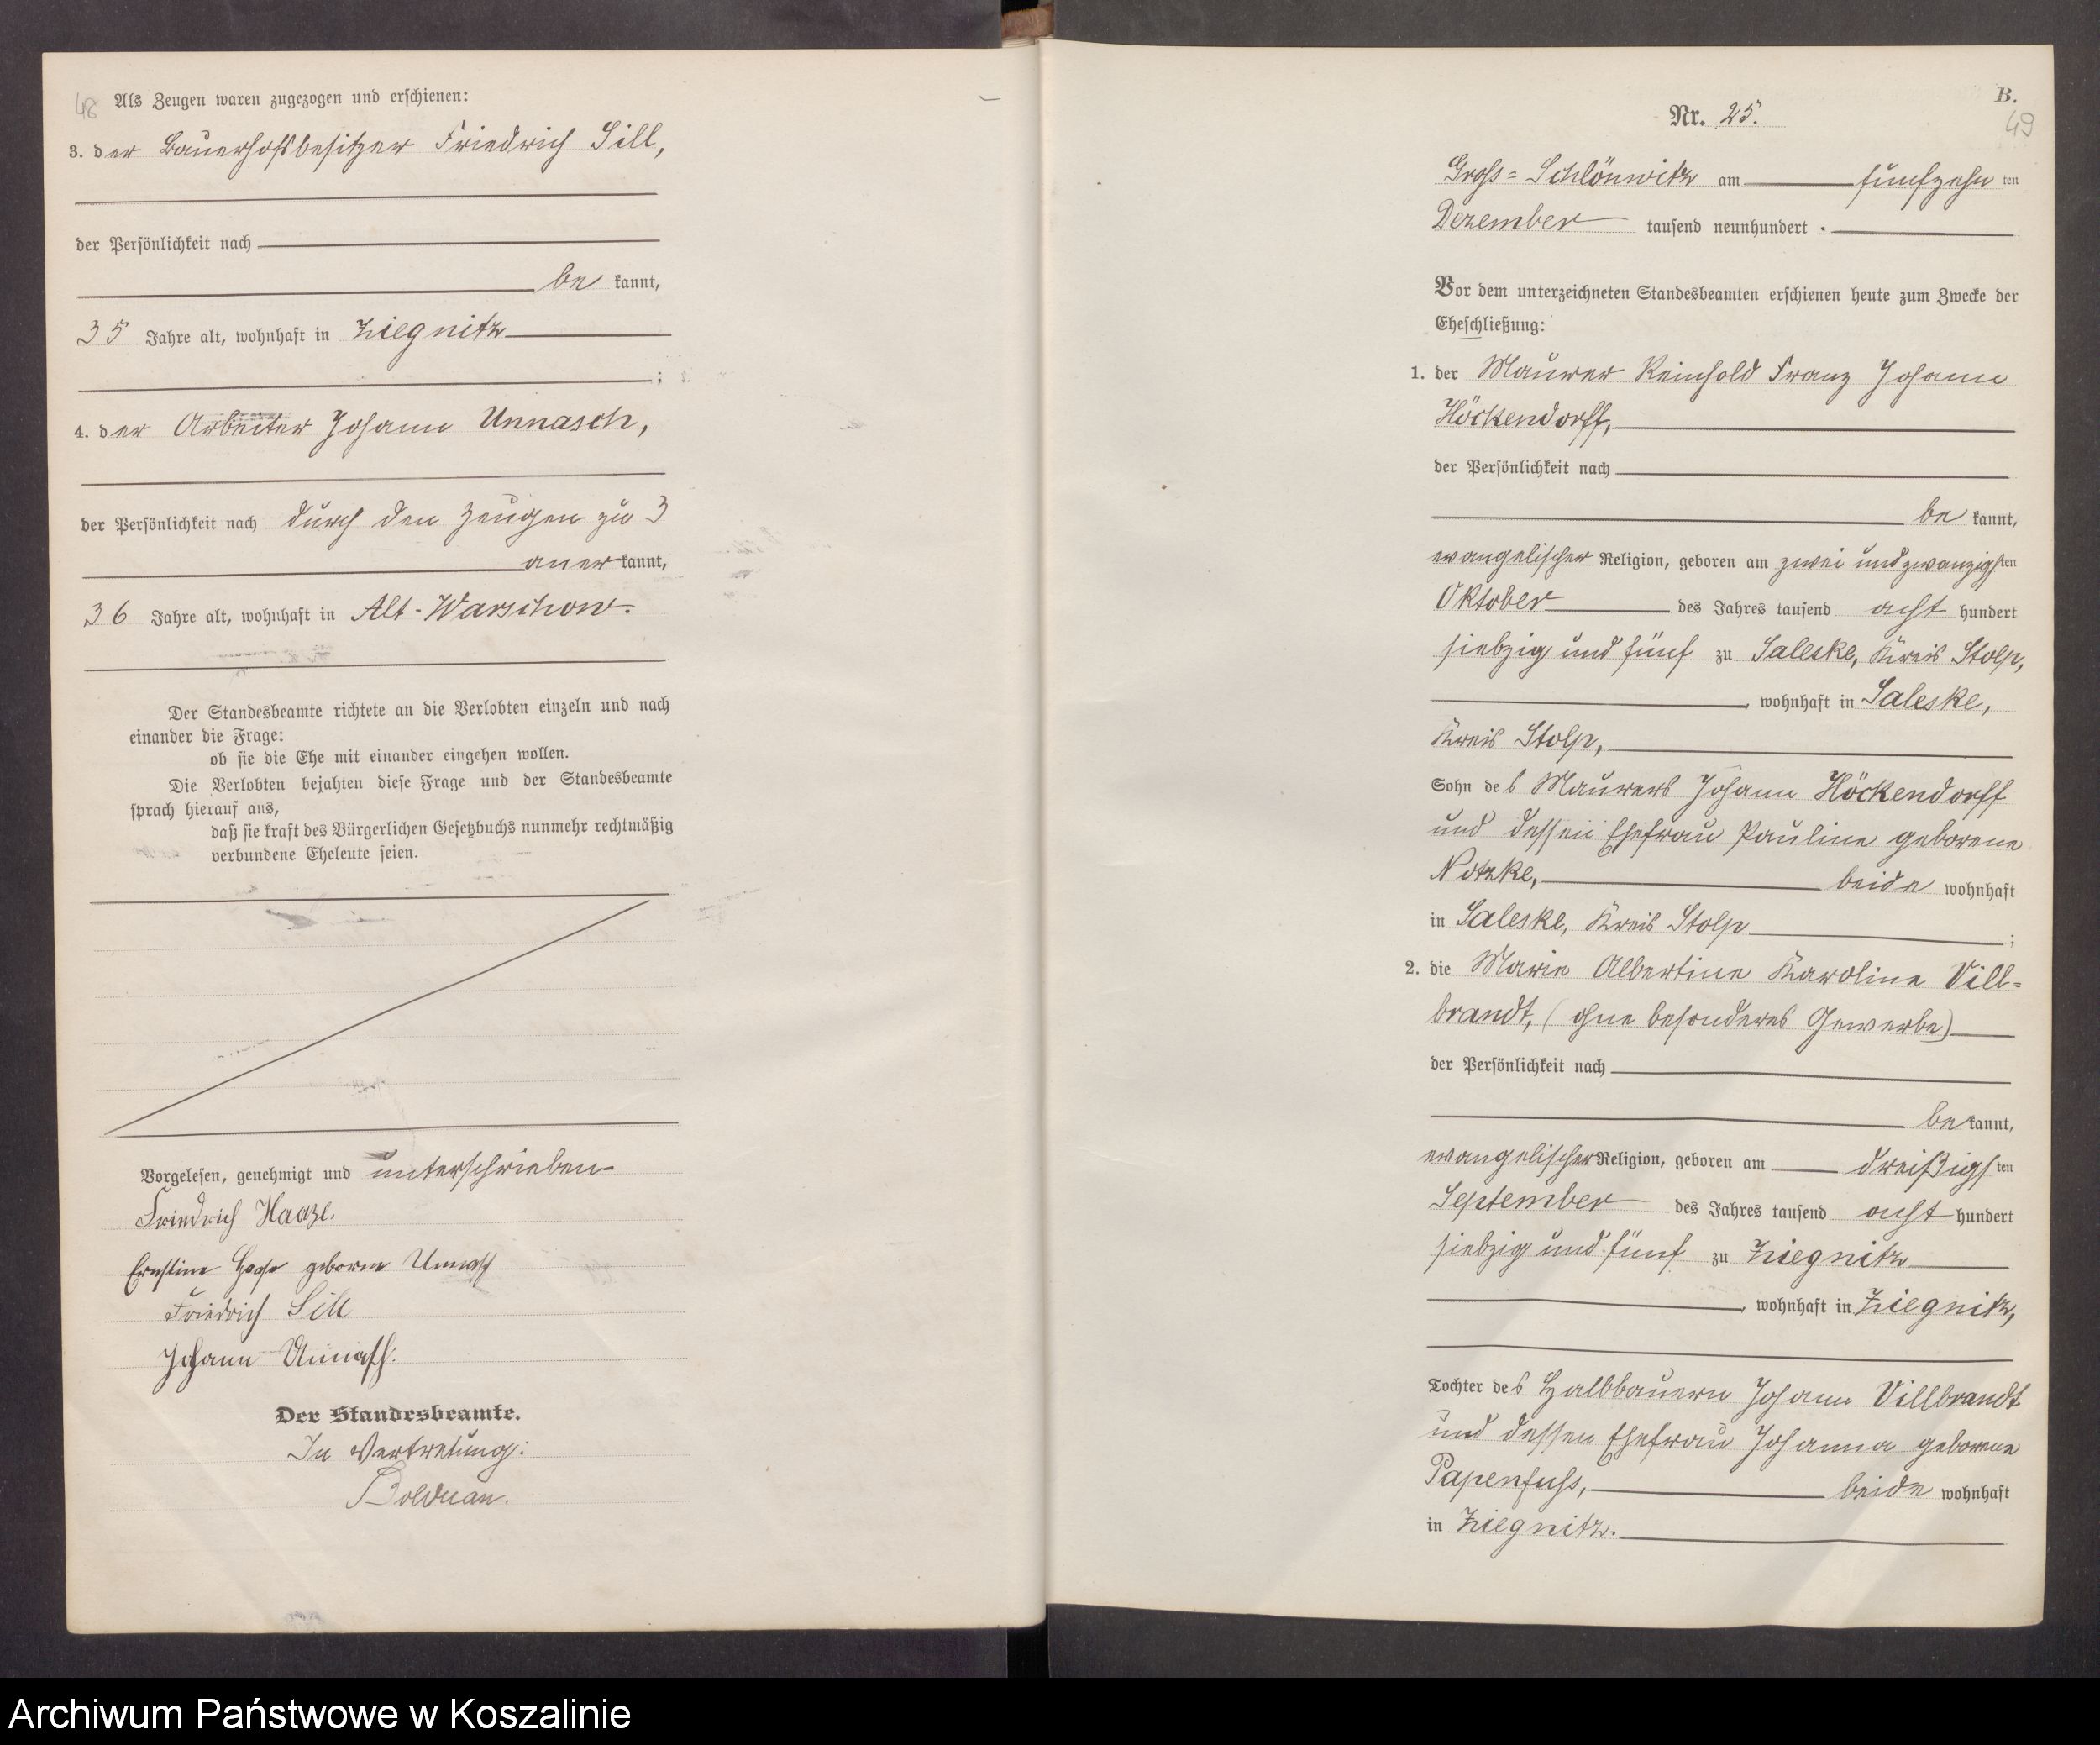 48
Als Zeugen waren zugezogen und erschienen:
3. der Bauerhofsbesitzer Friedrich Sill,
der Persönlichkeit nach
be kannt,
35 Jahre alt, wohnhaft in Ziegnitz
;
4. der Arbeiter Johann Unnasch,
der Persönlichkeit nach durch den Zeugen zu 3
aner kannt,
36 Jahre alt, wohnhaft in Alt-Warschow.
Der Standesbeamte richtete an die Verlobten einzeln und nach
einander die Frage:
ob sie die Ehe mit einander eingehen wollen.
Die Verlobten bejahten diese Frage und der Standesbeamte
sprach hierauf aus,
daß sie kraft des Bürgerlichen Gesetzbuchs nunmehr rechtmäßig
verbundene Eheleute seien.
Vorgelesen, genehmigt und unterschrieben
Friedrich Haase.
Ernstine Haase geborne Unnasch
Friedrich Sill
Johann Unnasch.
Der Standesbeamte.
In Vertretung:
Bolduan.
B.
49
Nr. 25.
Gross=Schlönwitz am fünfzehn ten
Dezember tausend neunhundert .
Vor dem unterzeichneten Standesbeamten erschienen heute zum Zwecke der
Eheschließung:
1. der Maurer Reinhold Franz Johann
Höckendorff,
der Persönlichkeit nach
be kannt,
evangelischer Religion, geboren am zwei und zwanzigsten
Oktober des Jahres tausend acht hundert
siebzig und fünf zu Saleske, Kreis Stolp,
, wohnhaft in Saleske,
Kreis Stolp,
Sohn des Maurers Johann Höckendorff
und dessen Ehefrau Pauline geborene
Notzke, beide wohnhaft
in Saleske, Kreis Stolp ;
2. die Marie Albertine Karoline Vill=
brandt, (ohne besonderes Gewerbe)
der Persönlichkeit nach
be kannt,
evangelischer Religion, geboren am dreißigsten
September des Jahres tausend acht hundert
siebzig und fünf zu Ziegnitz
, wohnhaft in Ziegnitz,
Tochter des Halbbauern Johann Villbrandt
und dessen Ehefrau Johanna geborene
Papenfuss, beide wohnhaft
in Ziegnitz.
Archiwum Państwowe w Koszalinie